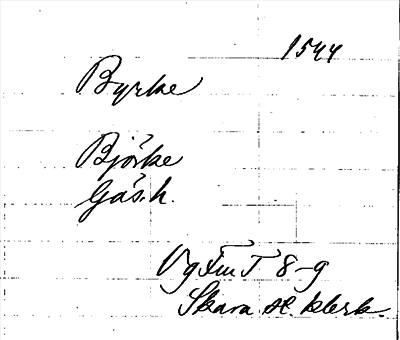 1544
Byrke
Björke
Gäs. h.
Vg Fm T 8-9
Skara st. klerk.